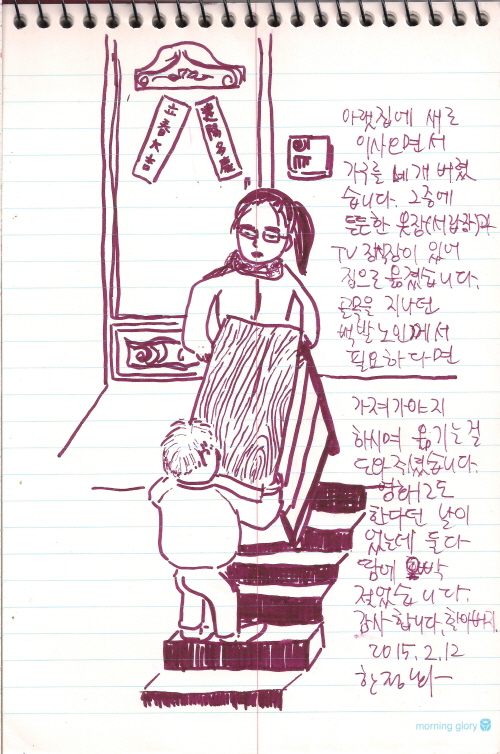 立春大吉
建陽多慶
아랫집에 새로
이사오면서
가구를 네 개 버렸
습니다. 그중에
튼튼한 옷장(서랍장)과
TV 장식장이 있어
집으로 옮겼습니다.
골목을 지나던
백발 노인께서
필요하다면
가져가야지
하시며 옮기는걸
도와주셨습니다.
영하12도
한다던 날이
었는데 둘다
땀에 박
젖었습니다.
감사합니다. 할아버지.
2015.2.12
한정
morning glory